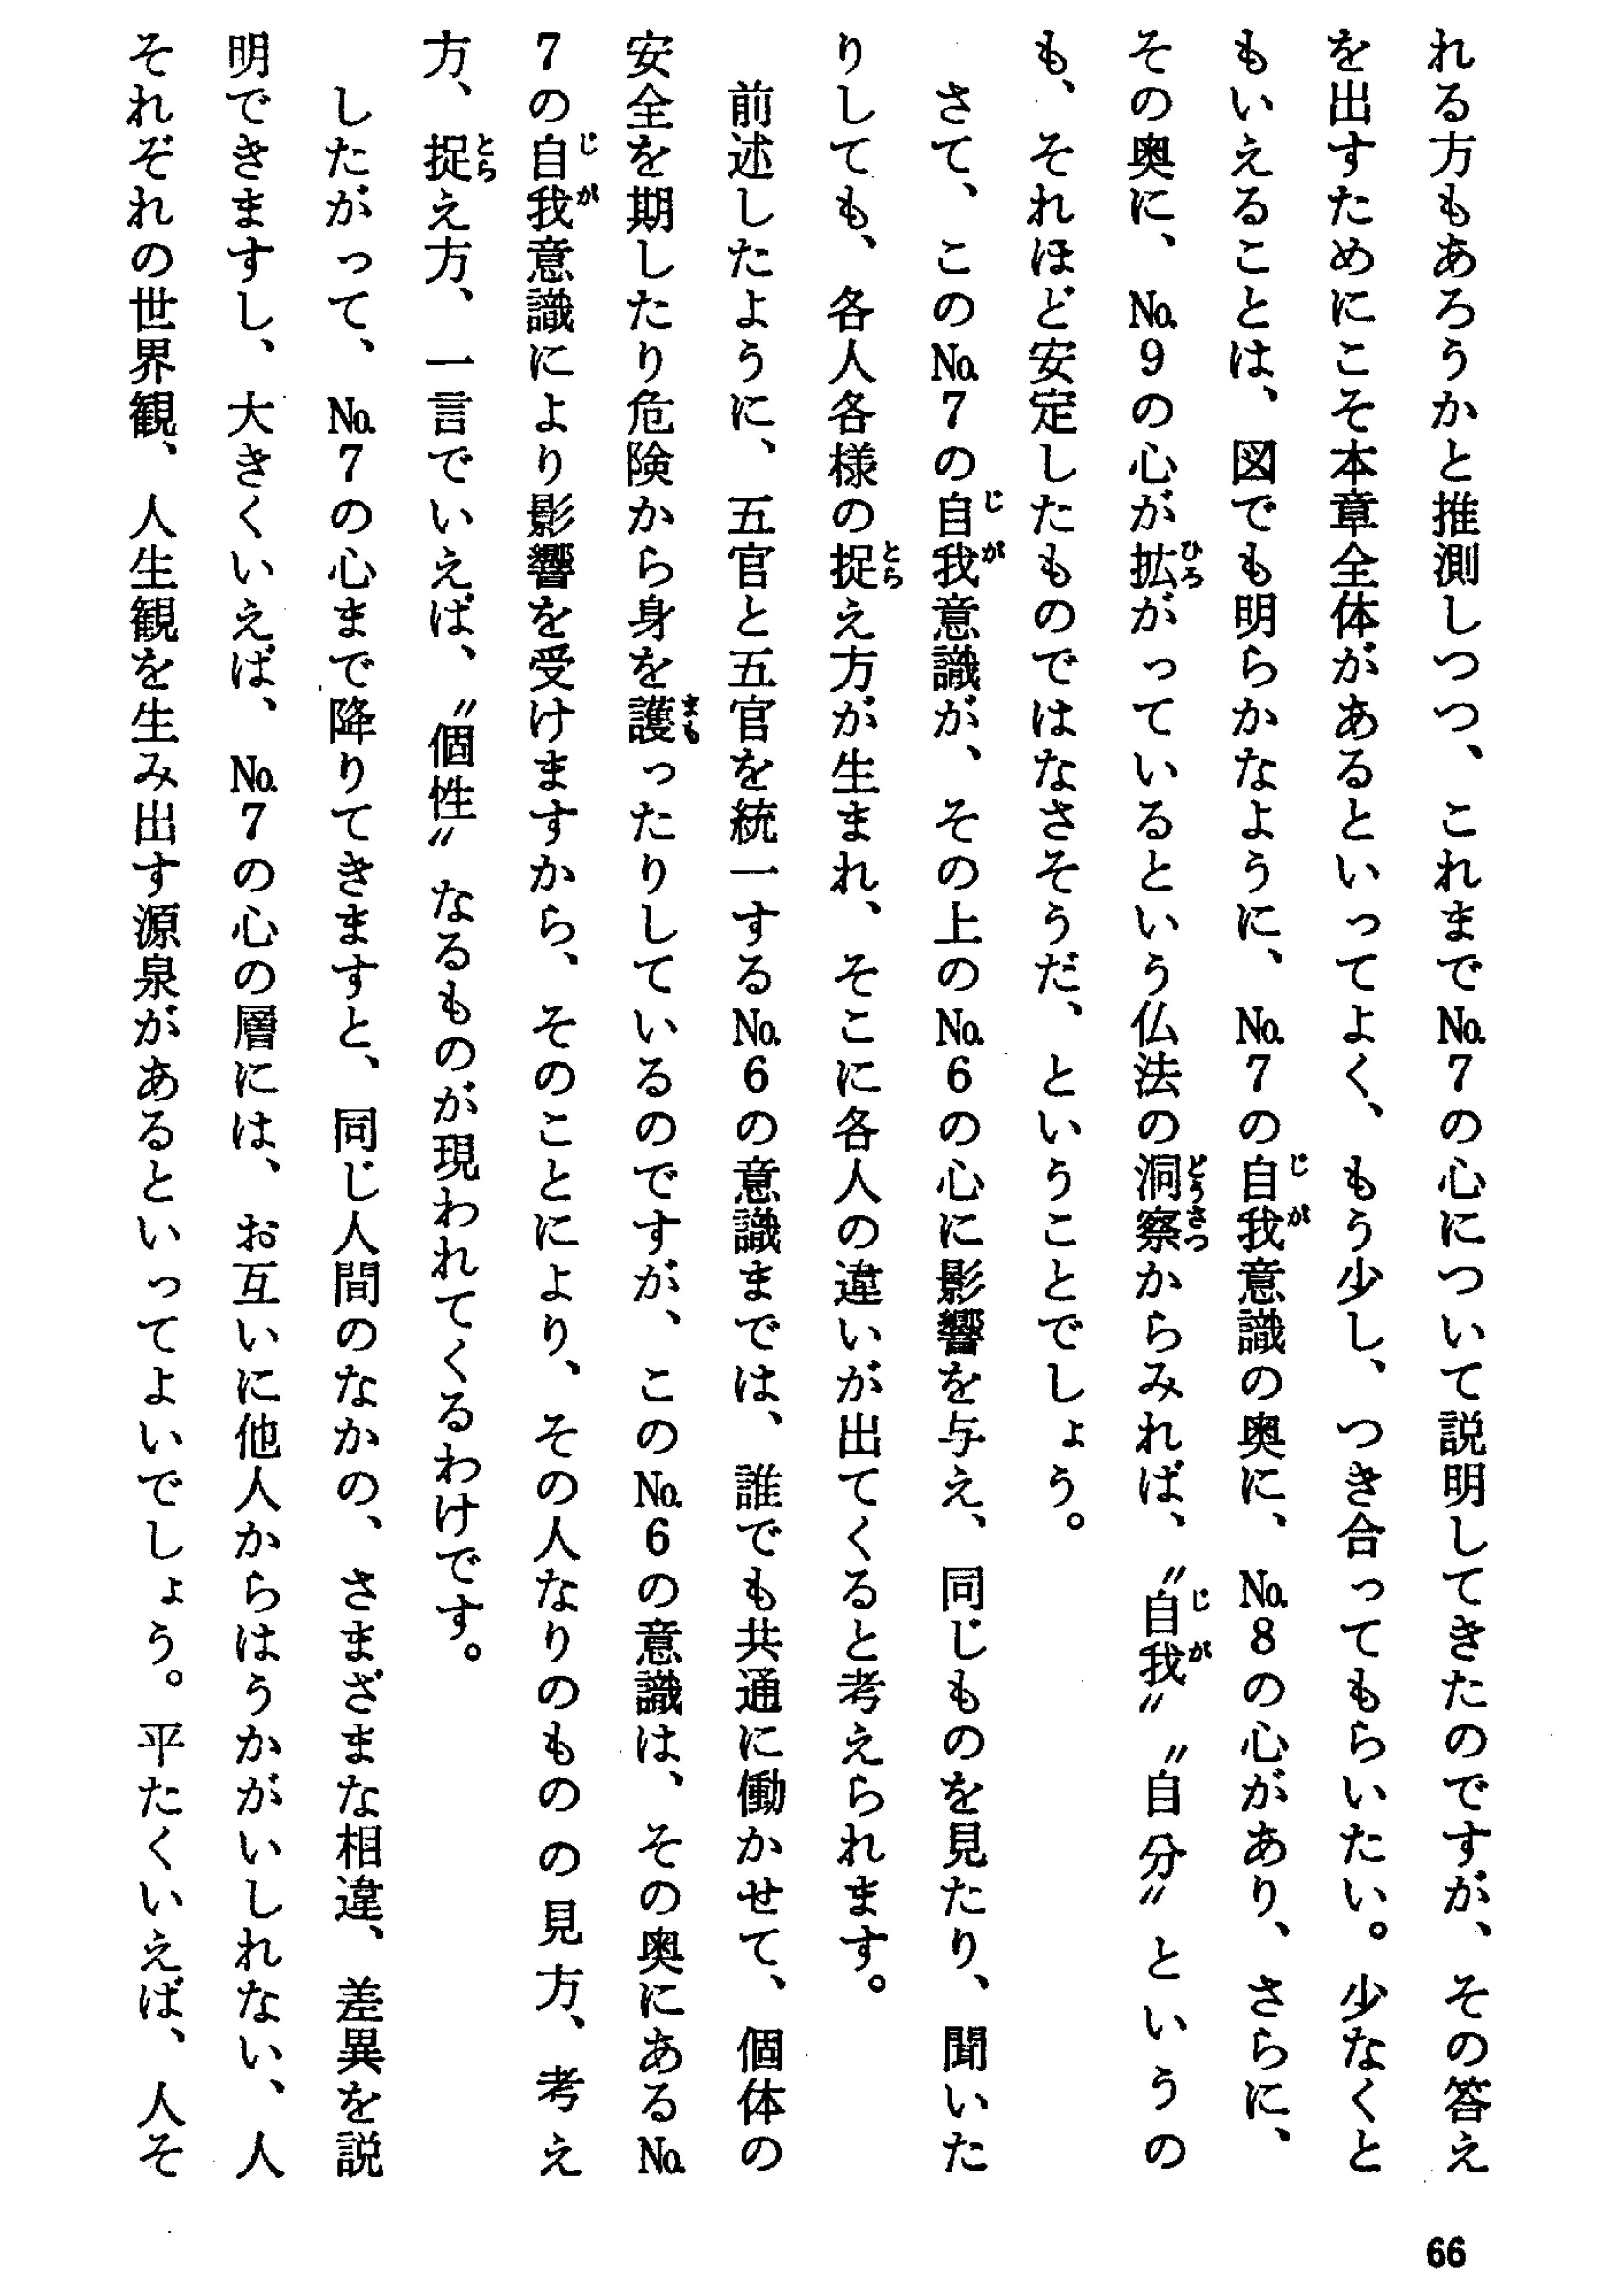 れる方もあろうかと推測しつつ、これまでNo.7の心について説明してきたのですが、その答え
を出すためにこそ本章全体があるといってよく、もう少し、つき合ってもらいたい。少なくと
もいえることは、図でも明らかなように、No.7の自我意識の奥に、No.8の心があり、さらに、
その奥に、No.9の心が拡がっているという仏法の洞察からみれば、〝自我〟〝自分〟というの
も、それほど安定したものではなさそうだ、ということでしょう。
さて、このNo.7の自我意識が、その上のNo.6の心に影響を与え、同じものを見たり、聞いた
りしても、各人各様の捉え方が生まれ、そこに各人の違いが出てくると考えられます。
前述したように、五官と五官を統一するNo.6の意識までは、誰でも共通に働かせて、個体の
安全を期したり危険から身を護ったりしているのですが、このNo.6の意識は、その奥にあるNo.
7の自我意識により影響を受けますから、そのことにより、その人なりのものの見方、考え
方、捉え方、一言でいえば、〝個性〟なるものが現われてくるわけです。
したがって、No.7の心まで降りてきますと、同じ人間のなかの、さまざまな相違、差異を説
明できますし、大きくいえば、No.7の心の層には、お互いに他人からはうかがいしれない、人
それぞれの世界観、人生観を生み出す源泉があるといってよいでしょう。平たくいえば、人そ
66